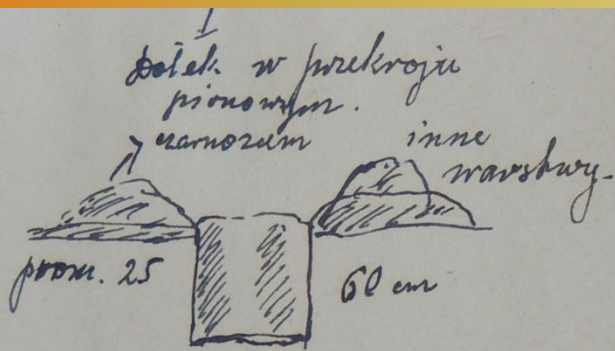 Dołek w przekroju
pionowym.
czarnozem
inne
warstwy.
prom. 25
60 cm